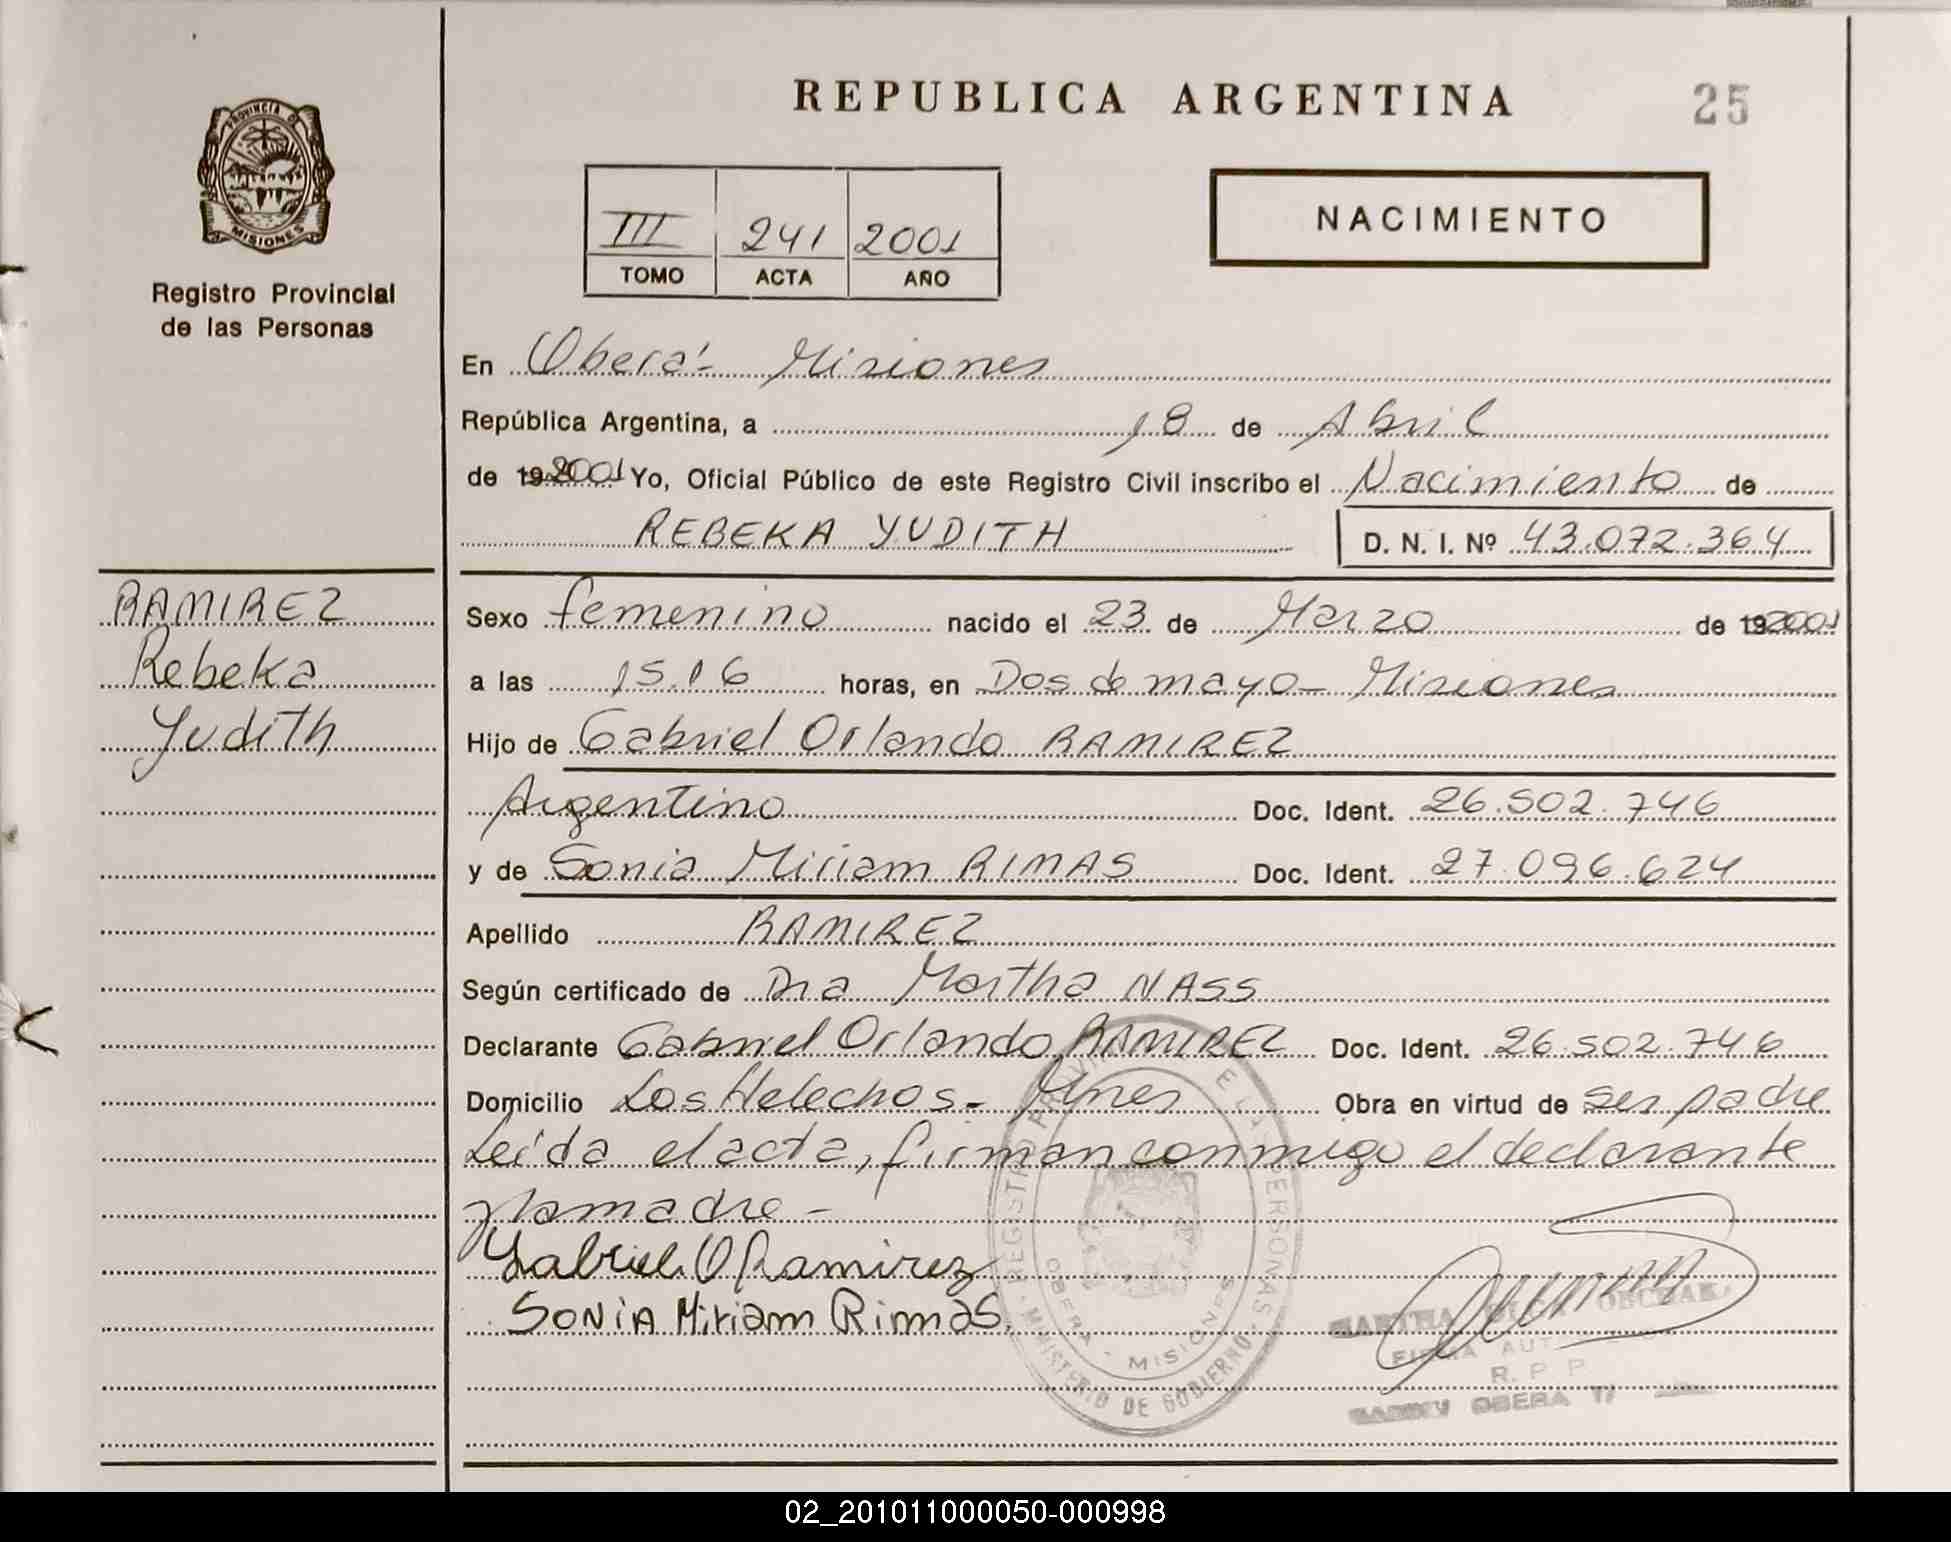 REPUBLICA ARGENTINA
25
PROVINCIA DE
MISIONES
Registro Provincial
de las Personas
III 241 2001
TOMO ACTA AÑO
NACIMIENTO
En Oberá - Misiones
República Argentina, a 18 de Abril
de 19 2001 Yo, Oficial Público de este Registro Civil inscribo el Nacimiento de
REBEKA YUDITH D. N. I. Nº 43.072.364
RAMIREZ
Rebeka
Yudith
Sexo femenino nacido el 23 de Marzo de 19 2001
a las 15.16 horas, en Dos de mayo - Misiones
Hijo de Gabriel Orlando RAMIREZ
Argentino Doc. Ident. 26.502.746
y de Sonia Miriam RIMAS Doc. Ident. 27.096.624
Apellido RAMIREZ
Según certificado de Dra Martha NASS
Declarante Gabriel Orlando RAMIREZ Doc. Ident. 26.502.746
Domicilio Los Helechos - Mnes Obra en virtud de ser padre
Leída el acta, firman conmigo el declarante
y la madre -
Gabriel O Ramirez
SONIA Miriam Rimas.
REGISTRO PROVINCIAL DE LAS PERSONAS
OBERA - MISIONES
MINISTERIO DE GOBIERNO
MARTHA
FIRMA
R. P. P.
OBERA
02_201011000050-000998